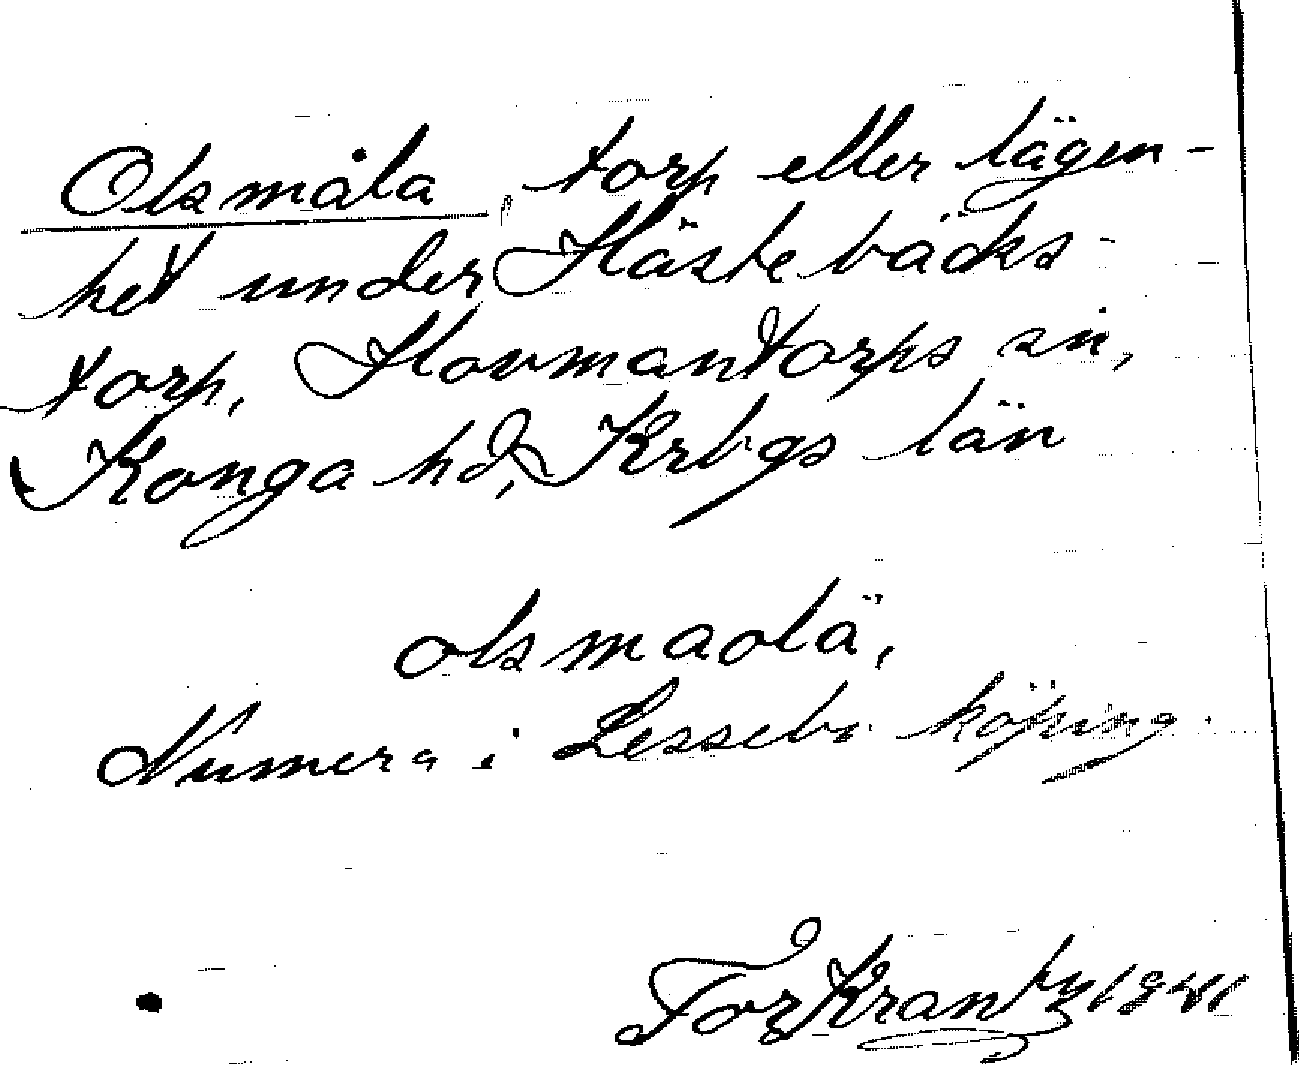 Olsmåla, torp eller lägen-
het under Hästebäcks-
torp, Hovmantorps sn,
Konga hd, Krbgs län
olsmaolä,
Numera i Lessebo köping.
Tor Krantz 1941